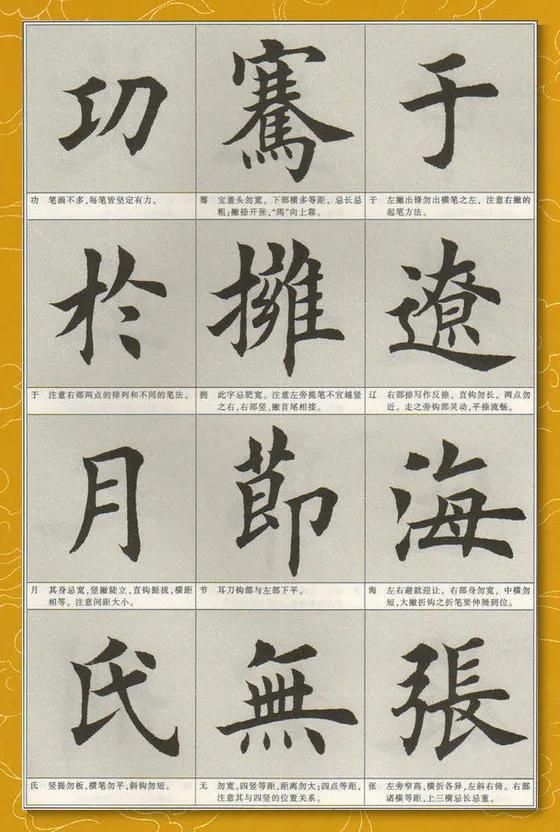 功 騫 于
功 笔画不多,每笔皆坚定有力。
骞 宝盖头勿宽。下部横多等距,忌长忌
粗;撇捺开张,“馬”向上靠。
于 左撇出锋勿出横笔之左,注意右撇的
起笔方法。
於 擁 遼
于 注意右部两点的排列和不同的笔法。
拥 此字忌肥宽。注意左旁提笔不宜越竖
之右,右部竖、撇首尾相接。
辽 右部捺写作反捺。直钩勿长,两点勿
近。走之旁钩部灵动,平捺流畅。
月 節 海
月 其身忌宽,竖撇陡立,直钩挺拔,横距
相等。注意间距大小。
节 耳刀钩部与左部下平。
海 左右避就迎让。右部身勿宽,中横勿
短,大撇折钩之折笔要伸展到位。
氏 無 張
氏 竖提勿板,横笔勿平;斜钩勿短。
无 勿宽,四竖等距,距离勿大;四点等距,
注意其与四竖的位置关系。
张 左旁窄高,横折各异,左斜右倚。右部
诸横等距,上三横忌长忌重。